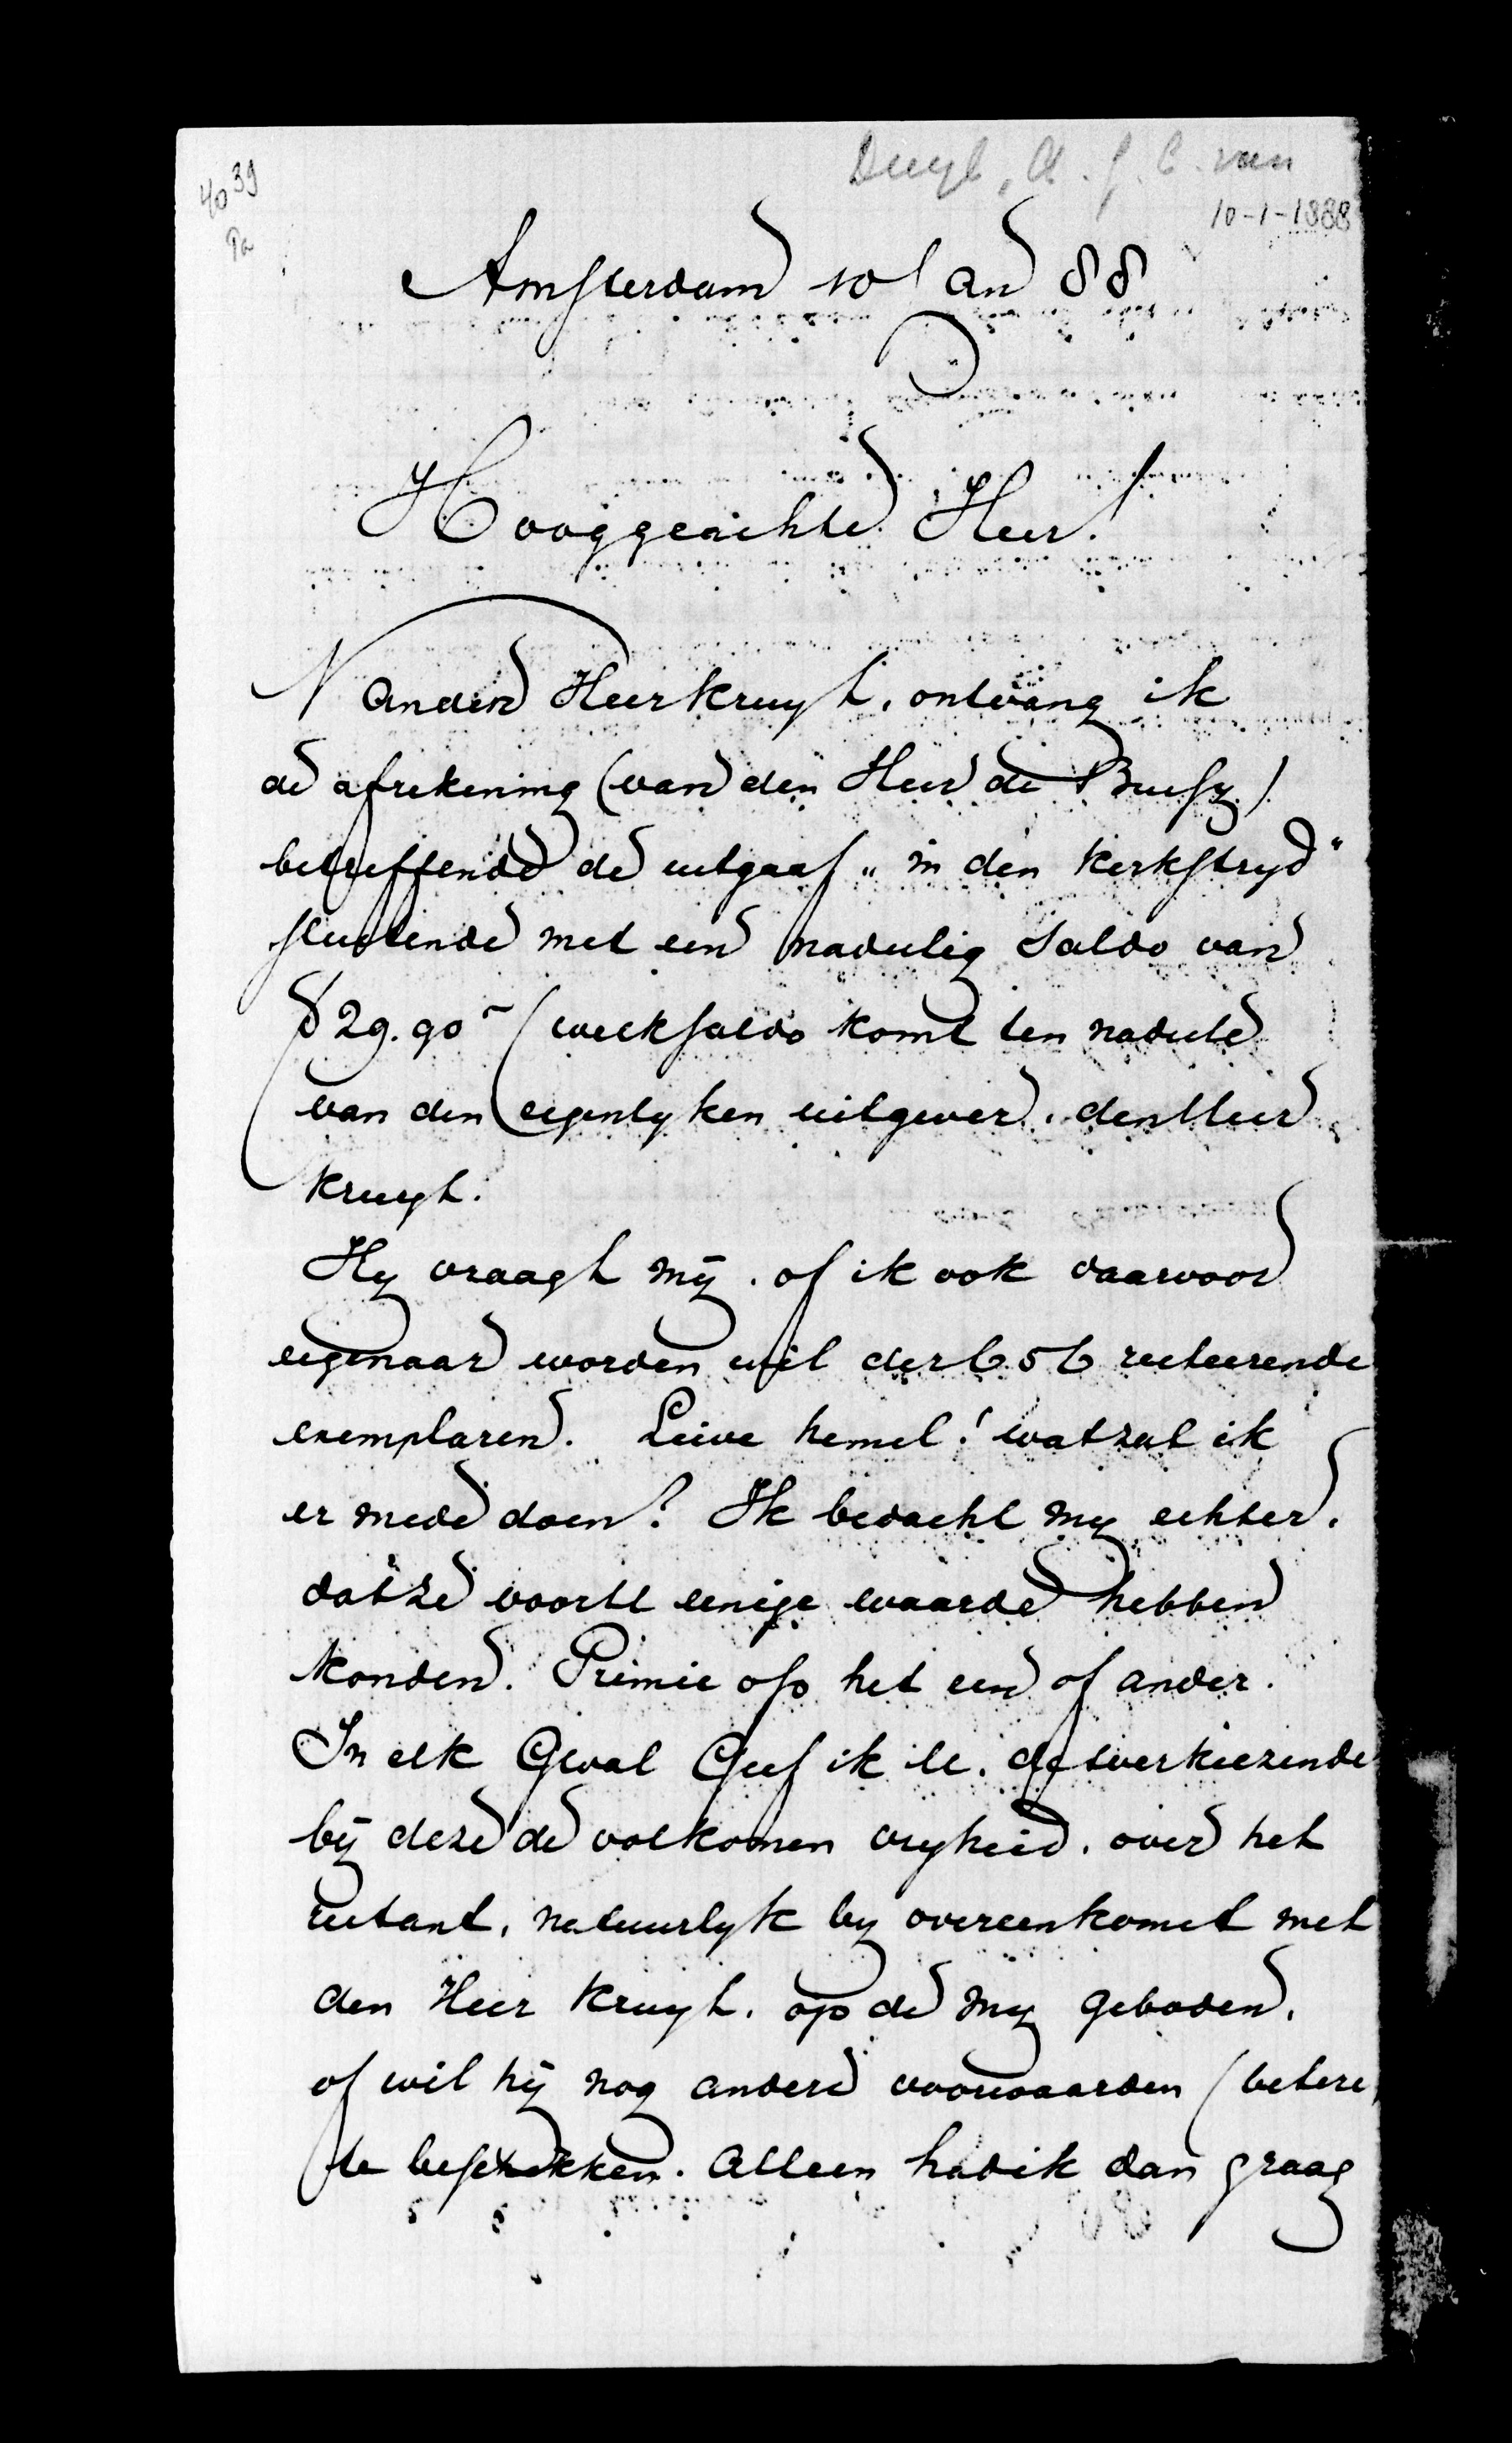 4039
Pa
Duyl, A. G. C. van
10-1-1888
Amsterdam 10 Jan 88
Hooggeachte Heer!
Van den Heer Kruyt, ontvang ik
de afrekening (van den Heer de Bussy)
betreffende de uitgaaf „in den Kerkstryd"
sluitende met een nadeelig saldo van
ƒ 29.90 (welk saldo komt ten nadeele
van den eigenlyken uitgever, den Heer
Kruyt.
Hy vraagt mij, of ik ook daarvoor
eigenaar worden wil der 656 resteerende
exemplaren. Lieve hemel! wat zal ik
er mede doen? Ik bedacht my echter,
dat ze voor U eenige waarde hebben
konden. Premie op het een of ander.
In elk Geval Geef ik U. desverkiezende
bij deze de volkomen vryheid, over het
restant, natuurlyk by overeenkomst met
den Heer Kruyt, op de my geboden,
of wil hij nog andere voorwaarden (betere)
te beschikken. Alleen had ik dan graag